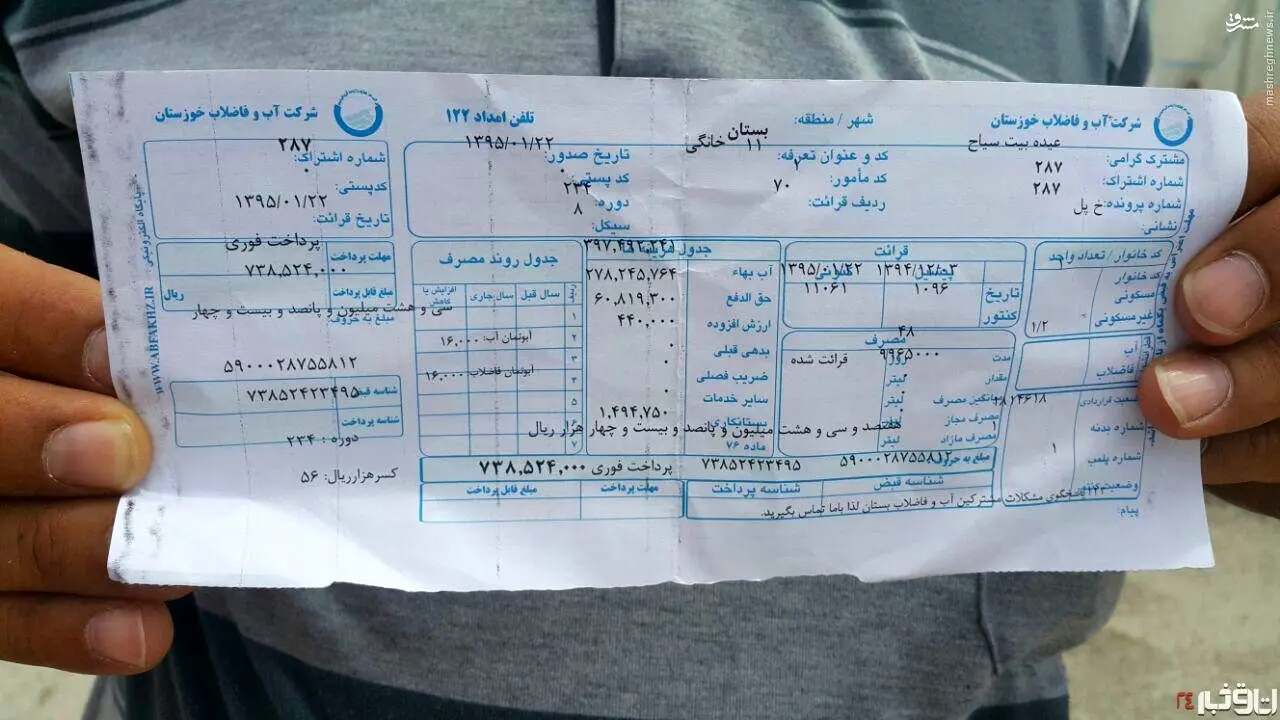 مشرق
mashreghnews.ir
شرکت آب و فاضلاب خوزستان
شهر / منطقه: بستان
تلفن امداد ۱۲۲
شرکت آب و فاضلاب خوزستان
مشترک گرامی: عبده بیت سیاح
شماره اشتراک: ۲۸۷
شماره پرونده: ۲۸۷
نشانی: خ پل
کد و عنوان تعرفه: ۱۱ خانگی
کد مأمور: ۱
ردیف قرائت: ۷۰
تاریخ صدور: ۱۳۹۵/۰۱/۲۲
کد پستی: ۰
دوره: ۲۳۴
سیکل: ۸
۲۸۷
شماره اشتراک:
۰
کدپستی:
۱۳۹۵/۰۱/۲۲
تاریخ قرائت:
پرداخت فوری
مهلت پرداخت
۷۳۸,۵۲۴,۰۰۰
مبلغ قابل پرداخت
ریال
سی و هشت میلیون و پانصد و بیست و چهار
مبلغ به حروف:
۵۹۰۰۰۲۸۷۵۵۸۱۲
شناسه قبض
۷۳۸۵۲۴۲۳۴۹۵
شناسه پرداخت
دوره : ۲۳۴
کسر هزار ریال: ۵۶
WWW.ABFAKHZ.IR
پایگاه الکترونیکی
کد خانوار / تعداد واحد
کد خانوار
مسکونی
غیرمسکونی
۱/۲
آب
فاضلاب
وضعیت قراردادی
شماره بدنه
شماره پلمب
۱
وضعیت کنتور
پیام:
قرائت
پیشین
کنونی
تاریخ
۱۳۹۴/۱۲/۰۳
کنتور
۱۰۹۶
۱۱۰۶۱
مصرف
مدت
۴۸
روز
قرائت شده
مقدار
۹۹۶۵۰۰۰
لیتر
میانگین مصرف
لیتر
مصرف مجاز
لیتر
مصرف مازاد
لیتر
۳۹۷,۴۹۲,۲۴۵
آب بهاء
۲۷۸,۲۴۵,۷۶۴
حق الدفع
۶۰,۸۱۹,۳۰۰
ارزش افزوده
۴۴۰,۰۰۰
بدهی قبلی
۰
ضریب فصلی
۰
سایر خدمات
۰
بستانکاری
۱,۴۹۴,۷۵۰
ماده ۷۶
جدول روند مصرف
ردیف
سال قبل
سال جاری
افزایش یا کاهش
۱
۲
۳
۴
۵
۷
آبونمان آب: ۱۶,۰۰۰
آبونمان فاضلاب: ۱۶,۰۰۰
هفتصد و سی و هشت میلیون و پانصد و بیست و چهار هزار ریال
مبلغ به حروف
۵۹۰۰۰۲۸۷۵۵۸۱۲
۷۳۸۵۲۴۲۳۴۹۵
پرداخت فوری
۷۳۸,۵۲۴,۰۰۰
شناسه قبض
شناسه پرداخت
مهلت پرداخت
مبلغ قابل پرداخت
پاسخگوی مشکلات مشترکین آب و فاضلاب بستان لذا باما تماس بگیرید.
اتاق خبر ۲۴